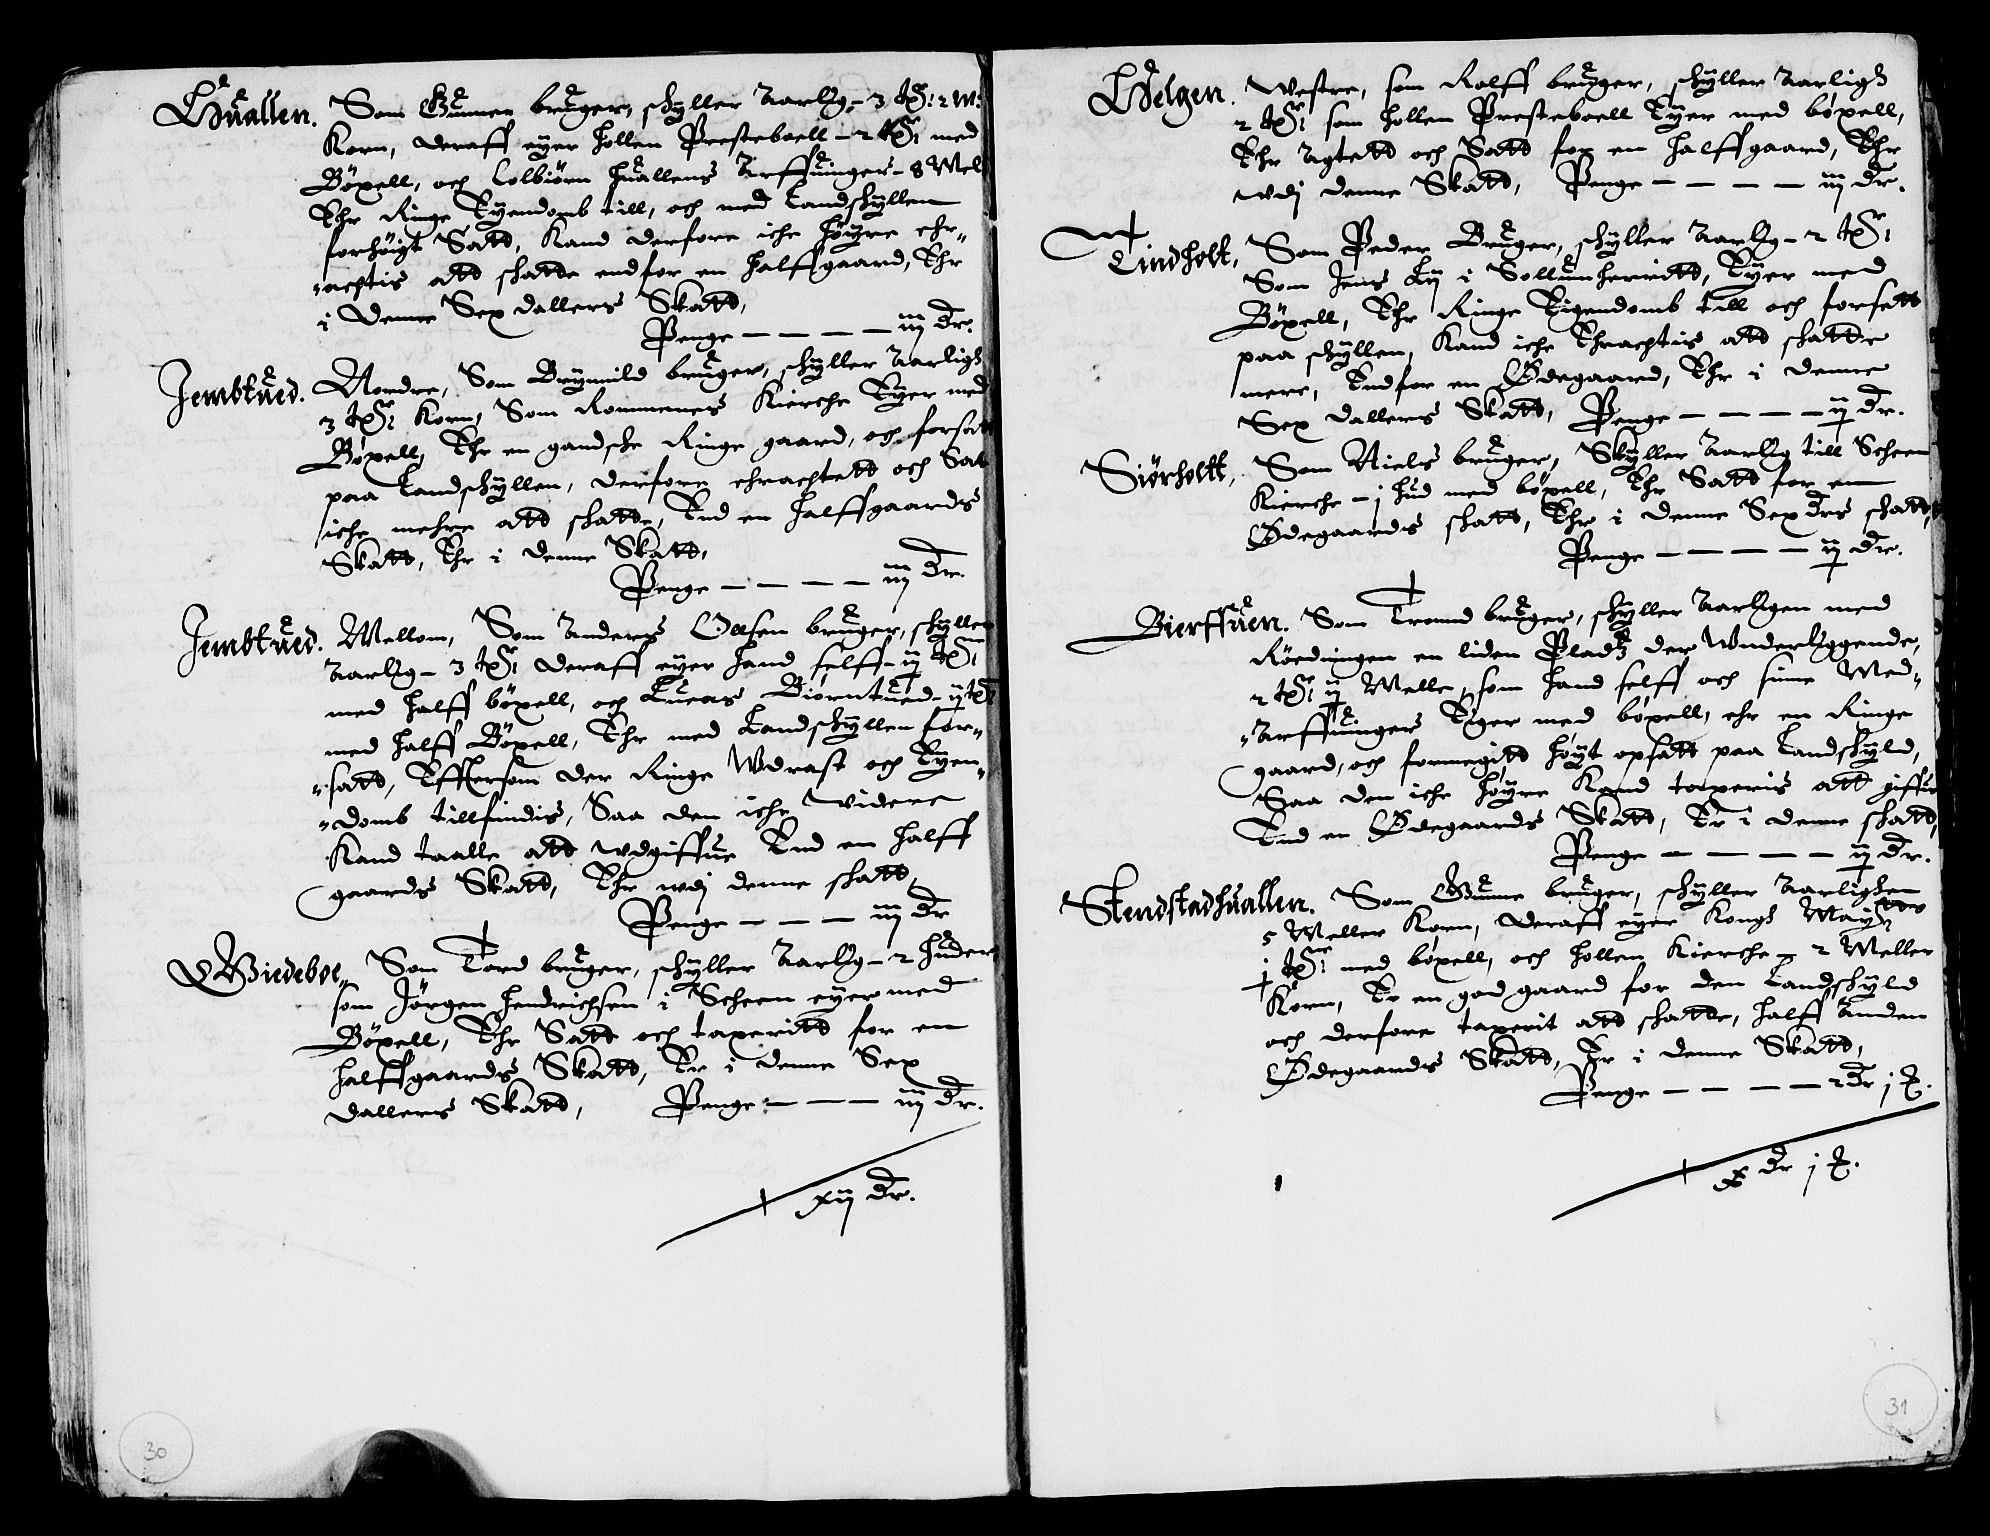 Huallen. Som Gunner bruger, schyller Aarlig - 3 tȠr: 2 M:
Korn, deraff eyer Hollen Presteboell - 2 tȠr med
Böxell, och Colbiörn Huallens Arffuinger - 8 Mel
Ehr Ringe Eyendomb till, och med Landschyllen
forhöigt Satt, Kand derfore iche höyre ehr„
„achtis att schatte end for en halffgaard, Ehr
i denne Sex dallers Skatt,
Penge — — — — iij dr.
Jembtued. Nordre, Som Brÿnnild bruger, schyller Aarligh
3 tȠr Korn, Som Rommenes Kierche Eyer med
Böxell, Ehr en gandsche Ringe gaard, och forsatt
paa Landschyllen, derfore ehrachtett och Sat
iche mehre att schatte, End en halffgaards
Skatt, Ehr i denne Skatt,
Penge — — — — iij dr.
Jembtued. Mellom, Som Anders Ollsen bruger, schyller
Aarlig - 3 tȠr deraff eyer hand selff - ij tȠr
med halff böxell, och Lucas Biörntued - ij tȠr
med halff Böxell, Ehr med Landschyllen for„
„satt, Efftersom der Ringe Wdrast och Eyen„
„domb tillfindis, Saa den iche videre
Kand taalle att wdgiffue End en halff
gaards Skatt, Ehr wdj denne schatt,
Penge — — — iij dr
Wiedeboe„ Som Tord bruger, schyller Aarlig - 2 huder
som Jörgen Hendrichsen i Scheen eyer med
Böxell, Ehr Satt och taxeritt for en
halffgaards Skatt, Er i denne Sex
dallers Skatt, Penge — — — iij dr.
xij dr.
30
Helgen. Westre, som Rolff bruger, schyller Aarligh
2 tȠr som Hollen Presteboell Eyer med böxell,
Ehr Agtett och Satt for en halffgaard, Ehr
wdj denne Skatt, Penge — — — — iij dr.
Lindholt, Som Peder Bruger, schyller Aarlig - 2 tȠr
Som Jens Ly i Sollumherridtt, Eyer med
Böxell, Ehr Ringe Eigendomb till och forsatt
paa schyllen, Kand iche Ehrachtis att schatte
mere, End for en Ödegaard, Ehr i denne
Sex dallers Skatt, Penge — — — — ij dr.
Siörholtt, Som Niels bruger, Skyller Aarlig till Scheen
Kierche - j hud med böxell, Ehr Satt for en
Ödegaards schatt, Ehr i denne Sex drs schatt,
Penge — — — — ij dr.
Bierffuen. Som Trond bruger, schyller Aarligen med
Röedningen en liden Pladtz der Wnderliggende,
2 tȠr ij Melle, som hand selff och sinne Med„
„Arffuinger Eiger med böxell, ehr en Ringe
gaard, och formegitt höyt opsatt paa Landschyld,
Saa den iche höyre Kand taxeris att giffue
End en Ödegaards Skatt, Er i denne schatt,
Penge — — — — ij dr.
Stendstadhuallen. Som Gunne bruger, schyller Aarlighen
5 Meller Korn, deraff eyer Kongh Maytts
j tȠr med böxell, och Hollen Kierche - 2 Meller
Korn, Er en god gaard for den Landschyld
och derfore taxerit att schatte, halff Anden
Ödegaards Skatt, Er i denne Skatt,
Penge — — — — 2 dr j
x dr j
31